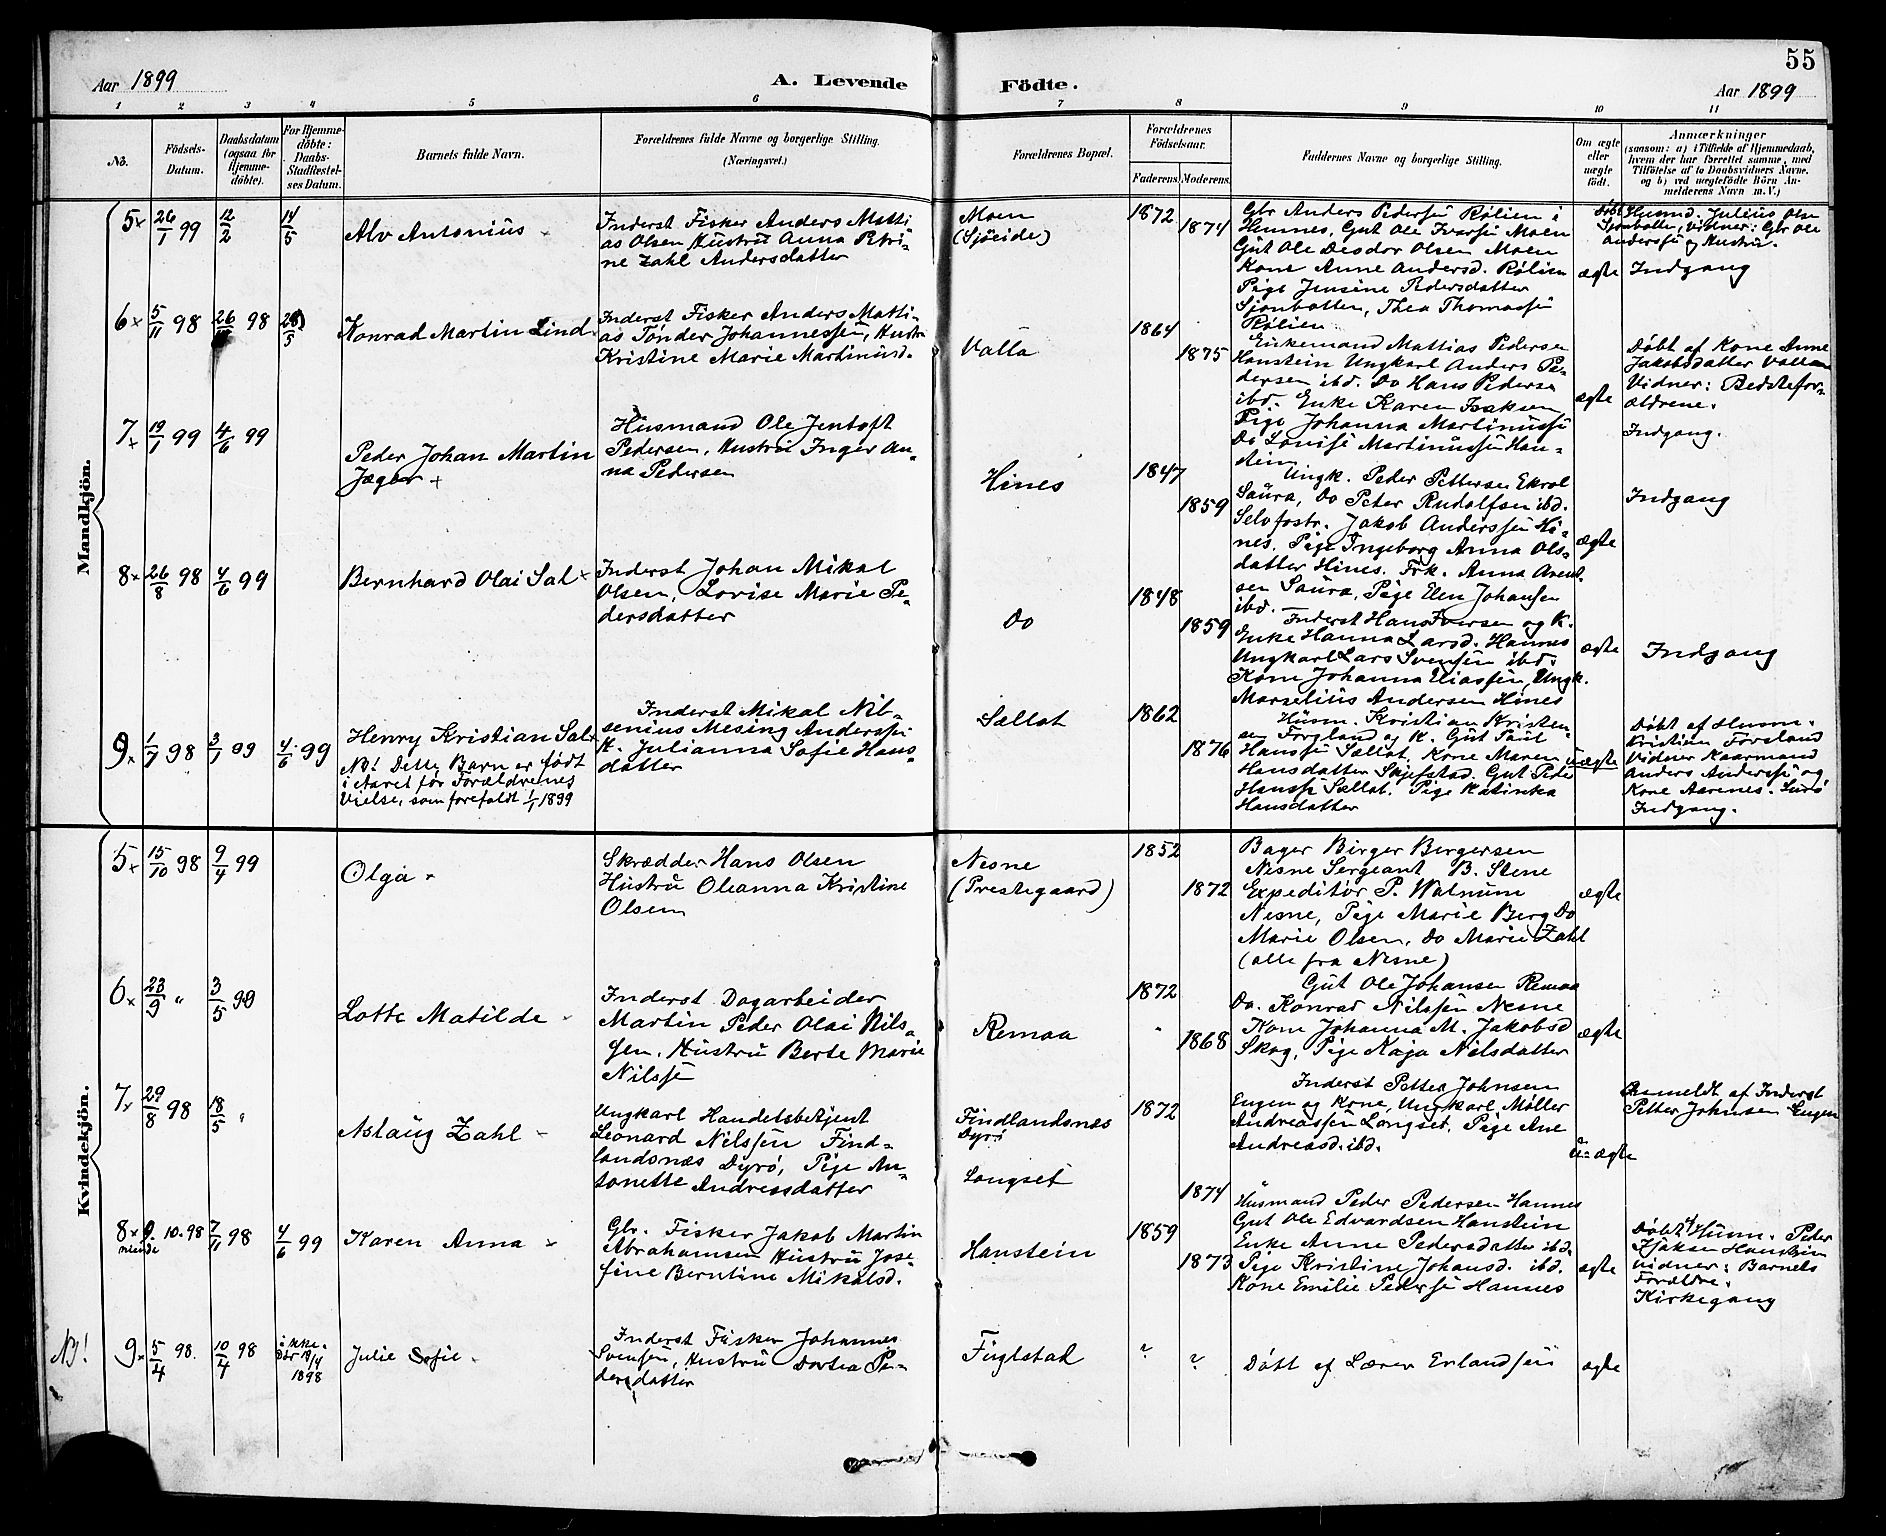 55
Aar 1899
A. Levende Födte.
Aar 1899
1 2 3 4 5 6 7 8 9 10 11
No.
Födsels-
Datum.
Daabsdatum
(ogsaa for
Hjemme-
döbte).
For Hjemme-
döbte:
Daabs-
Stadfæstel-
ses Datum.
Barnets fulde Navn.
Forældrenes fulde Navne og borgerlige Stilling.
(Næringsvei.)
Forældrenes Bopæl.
Forældrenes
Födselsaar.
Faderens. Moderens.
Faddernes Navne og borgerlige Stilling.
Om ægte
eller
uægte
födt.
Anmærkninger
(saasom: a) i Tilfælde af Hjemmedaab,
hvem der har forrettet samme, med
Tilföielse af to Daabsvidners Navne,
og b) ved uægtefödte Börn An-
melderens Navn m. V.)
Mandkjön.
5 × 26/1 99
12/2
14/5
Alv Antonius
Inderst Fisker Anders Matti-
as Olsen Hustru Anna Petri-
ne Zahl Andersdatter
Moen
(Sjøeide)
1872
1874
Gbr Anders Pedersen Rølien i
Hemnes, Gut Ole Ivarsen Moen
Gut Ole Deodor Olsen Moen
Kone Anne Andersd. Rølien
Pige Jensine Pedersdatter
Sjonbotten, Thea Thomassen
Rølien
ægte
Døbt Husmd. Julius Olsen
Sjonbotten, Vidner: Gbr Ole
Anderssen og Hustru.
Indgang
6 × 5/11 98
26/ 98
28/5
Konrad Martin Lind
Inderst Fisker Anders Matti-
as Tønder Johannessen, Hustru
Kristine Marie Martinusd.
Valla
1864
1875
Enkemand Mattias Pedersen
Hanstein Ungkarl Anders Pe-
dersen ibd. Do Hans Pedersen
ibd. Enke Karen Isaksen
Pige Johanna Martinussen
Do Lovise Martinussen Han-
stein
ægte
Døbt af Kone Anne
Jakobsdatter Valla
Vidner: Bedstefor-
ældrene.
Indgang.
7 × 19/1 99
4/6 99
Peder Johan Martin
Jæger +
Husmand Ole Jentoft
Pedersen, Hustru Inger An-
na Pedersen
Hines
1847
1859
Ungk. Peder Pettersen Ekrol
Saura, Do Peter Rudolfsen ibd.
Selvfostr. Jakob Anderssen Hi-
nes, Pige Ingeborg Anna Ols-
datter Hines. Frk. Anna Arent-
sen Saura, Pige Elen Johansen
ibd.
ægte
Indgang
8 × 26/8 98
4/6 99
Bernhard Olai Sal
Inderst Johan Mikal
Olsen, Lovise Marie Pe-
dersdatter
Do
1848
1859
Inderst Hans Iversen og K.
Enke Hanna Larsd. Hannes
Ungkarl Lars Svensen ibd.
Kone Johanna Eliassen, Ungk.
Marselius Andersen Hines
ægte
Indgang
9 × 1/7 98
3/7 99
4/6 99
Henry Kristian Sal
NB! Dette Barn er født
i Aaret før Forældrenes
Vielse, som forefaldt 1/1 1899
Inderst Mikal Nil-
senius Mesing Anderssen
K. Julianna Sofie Hans
datter
Sællot
1862
1876
Husm. Kristian Kristen-
sen Forsland og K. Gut Paul
Hanssen Sællot, Kone Maren
Hansdatter Skjefstad. Gut Peder
Hanssen Sællot. Pige Katinka
Hansdatter
uægte
Døbt af Husm.
Kristian Forsland
Vidner Kaarmand
Anders Anderssen og
Kone Aarenes.
Indgang.
Kvindekjön.
5 × 15/10 98
9/4 99
Olga
Skrædder Hans Olsen
Hustru Oleanna Kristine
Olsen
Nesne
(Prestegaard)
1852
1872
Bager Birger Bergersen
Nesne Sergeant B. Stene
Expeditør P. Walnum
Nesne, Pige Marie Berg Do
Marie Olsen, Do Marie Zahl
(alle fra Nesne)
ægte
6 × 23/9 "
3/5 99
Lotte Matilde
Inderst Dagarbeider
Martin Peder Olai Nils-
sen, Hustru Berte Marie
Nilssen
Remaa
1872
1868
Gut Ole Johansen Remaa
Do. Konrad Nilssen Nesne
Kone Johanna M. Jakobsd
Skog, Pige Kaja Nilsdatter
ægte
7 × 29/8 98
18/5 "
Aslaug Zahl
Ungkarl Handelsbetjent
Leonard Nilssen Find-
landsnæs Dyrø, Pige An-
tonette Andreasdatter
Findlandsnæs
Dyrø
Longset
1872
1874
Inderst Petter Johnsen
Eugen og Kone, Ungkarl Møller
Andreassen Longset. Pige Ane
Andreasd. ibd.
u-ægte
Anmeldt af Inderst
Petter Johnsen Eugen
8 × 9. 10. 98
7/11 98
4/6 99
Karen Anna
Gbr. Fisker Jakob Martin
Abrahamsen Hustru Jose-
fine Berntine Mikalsd.
Hanstein
1859
1873
Husmand Peder Pedersen Hannes
Gut Ole Edvardsen Hanstein
Enke Anne Pedersdatter ibd.
Pige Kristine Johansd. ibd.
Kone Emilie Pedersen Hannes
ægte
Døbt af Husm. Peder
Isaksen Hanstein
Vidner: Barnets
Forældre.
Kirkegang
NB!
9 × 5/4 98.
10/4 98
ikke.
Dør 19/4
1898
Julie Sofie
Inderst Fisker Johannes
Svensen, Hustru Dortea Pe-
dersdatter
Fuglstad
?
?
Døbt af Lærer Erlandsen
ægte